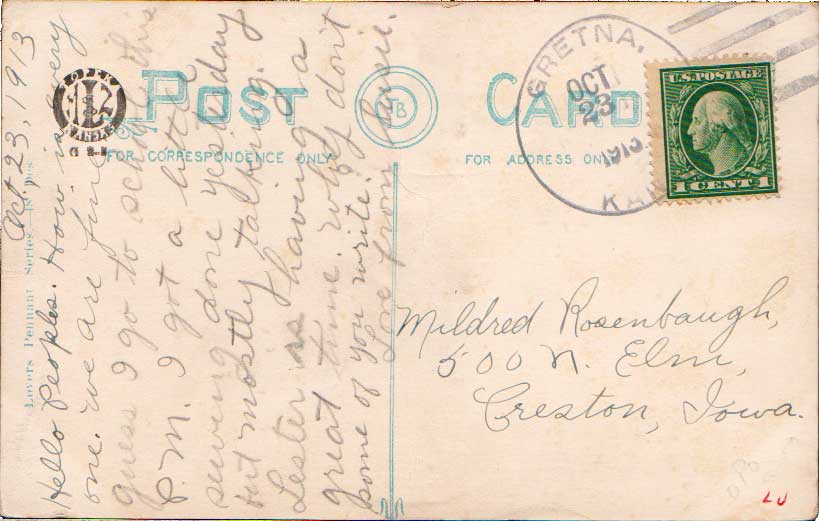 Oct, 23, 1913
Hello Peoples. How is every
one. We are fine
guess I go to school this
P.M. I got a little
sewing done yesterday
but mostly talking.
Lester is having a
great time. why don't
some of you write.
Love from Susie.
POST CARD
FOR CORRESPONDENCE ONLY
FOR ADDRESS ONLY
GRETNA,
OCT
23
1913
KA
U.S. POSTAGE
1 CENT 1
Mildred Rosenbaugh,
500 N. Elm,
Creston, Iowa.
Lovers Pennant Series
LU